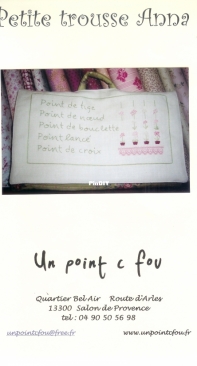 Petite trousse Anna
Point de tige
Point de nœud
Point de bouclette
Point lancé
Point de croix
PinDIY
Un point c fou
Quartier Bel Air Route d'Arles
13300 Salon de Provence
tel : 04 90 50 56 98
unpointcfou@free.fr www.unpointcfou.fr